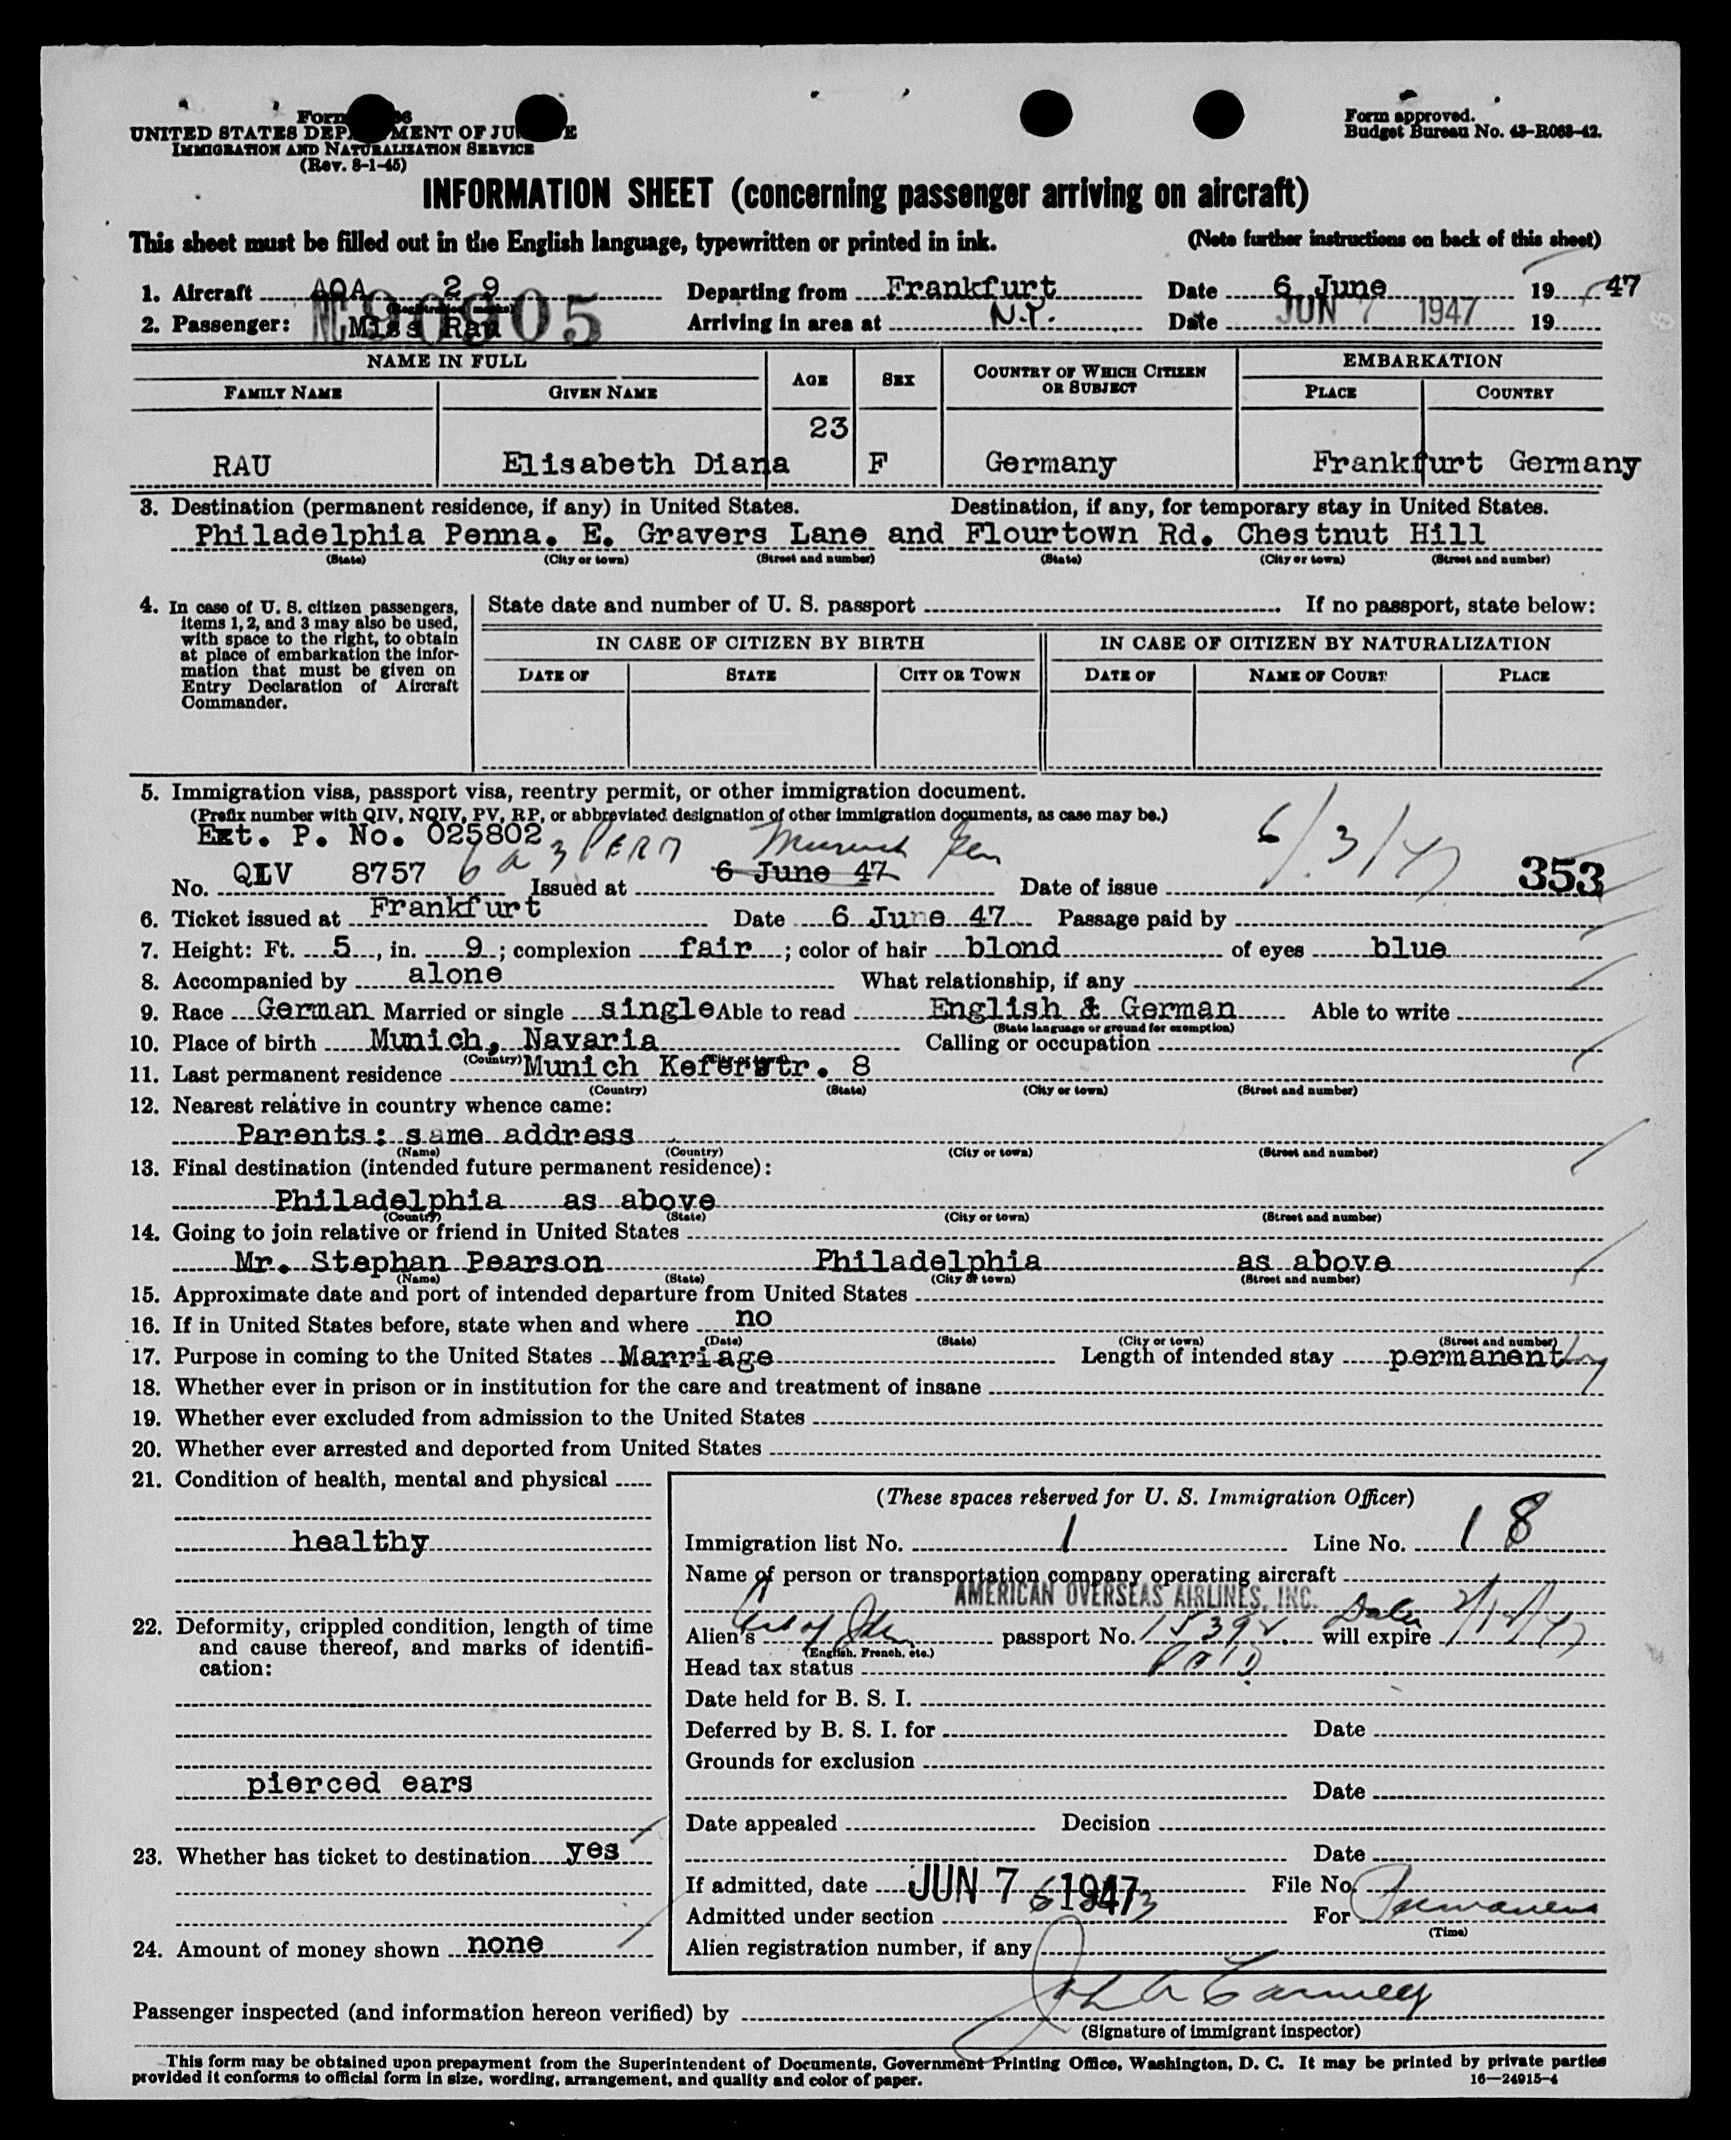 Form
UNITED STATES DEP MENT OF JU E
IMMIGRATION AND NATURALIZATION SERVICE
(Rev. 8-1-45)
Form approved.
Budget Bureau No. 43-R063-42.
INFORMATION SHEET (concerning passenger arriving on aircraft)
This sheet must be filled out in the English language, typewritten or printed in ink. (Note further instructions on back of this sheet)
1. Aircraft AOA 29 Departing from Frankfurt Date 6 June 19 47
(Registration marks)
NC90905
2. Passenger: Miss Rau Arriving in area at N.Y. Date JUN 7 1947 19
NAME IN FULL AGE SEX COUNTRY OF WHICH CITIZEN OR SUBJECT EMBARKATION
FAMILY NAME GIVEN NAME PLACE COUNTRY
23
RAU Elisabeth Diana F Germany Frankfurt Germany
3. Destination (permanent residence, if any) in United States. Destination, if any, for temporary stay in United States.
Philadelphia Penna. E. Gravers Lane and Flourtown Rd. Chestnut Hill
(State) (City or town) (Street and number) (State) (City or town) (Street and number)
4. In case of U. S. citizen passengers, items 1, 2, and 3 may also be used, with space to the right, to obtain at place of embarkation the information that must be given on Entry Declaration of Aircraft Commander.
State date and number of U. S. passport If no passport, state below:
IN CASE OF CITIZEN BY BIRTH IN CASE OF CITIZEN BY NATURALIZATION
DATE OF STATE CITY OR TOWN DATE OF NAME OF COURT PLACE
5. Immigration visa, passport visa, reentry permit, or other immigration document.
(Prefix number with QIV, NQIV, PV, RP, or abbreviated designation of other immigration documents, as case may be.)
Ext. P. No. 025802
No. QIV 8757 6 a 3 PERM Issued at 6 June 47 Munich Ger Date of issue 6/3/47 353
6. Ticket issued at Frankfurt Date 6 June 47 Passage paid by
7. Height: Ft. 5, in. 9; complexion fair; color of hair blond of eyes blue
8. Accompanied by alone What relationship, if any
9. Race German Married or single single Able to read English & German Able to write
(State language or ground for exemption)
10. Place of birth Munich, Navaria Calling or occupation
(Country) (City or town)
11. Last permanent residence Munich Keferstr. 8
(Country) (State) (City or town) (Street and number)
12. Nearest relative in country whence came:
Parents: same address
(Name) (Country) (City or town) (Street and number)
13. Final destination (intended future permanent residence):
Philadelphia as above
(Country) (State) (City or town) (Street and number)
14. Going to join relative or friend in United States
Mr. Stephan Pearson Philadelphia as above
(Name) (State) (City or town) (Street and number)
15. Approximate date and port of intended departure from United States
16. If in United States before, state when and where no
(Date) (State) (City or town) (Street and number)
17. Purpose in coming to the United States Marriage Length of intended stay permanent
18. Whether ever in prison or in institution for the care and treatment of insane
19. Whether ever excluded from admission to the United States
20. Whether ever arrested and deported from United States
21. Condition of health, mental and physical
healthy
22. Deformity, crippled condition, length of time and cause thereof, and marks of identification:
pierced ears
23. Whether has ticket to destination yes
24. Amount of money shown none
(These spaces reserved for U. S. Immigration Officer)
Immigration list No. 1 Line No. 18
Name of person or transportation company operating aircraft
AMERICAN OVERSEAS AIRLINES, INC.
Alien's Cert of Iden passport No. 15392 will expire
(English, French, etc.)
Head tax status PAID
Date held for B. S. I.
Deferred by B. S. I. for Date
Grounds for exclusion
Date
Date appealed Decision
Date
If admitted, date JUN 7 1947 File No.
Admitted under section 6 a 3 For Permanent
(Time)
Alien registration number, if any
Passenger inspected (and information hereon verified) by
(Signature of immigrant inspector)
This form may be obtained upon prepayment from the Superintendent of Documents, Government Printing Office, Washington, D. C. It may be printed by private parties
provided it conforms to official form in size, wording, arrangement, and quality and color of paper. 16—24915-4